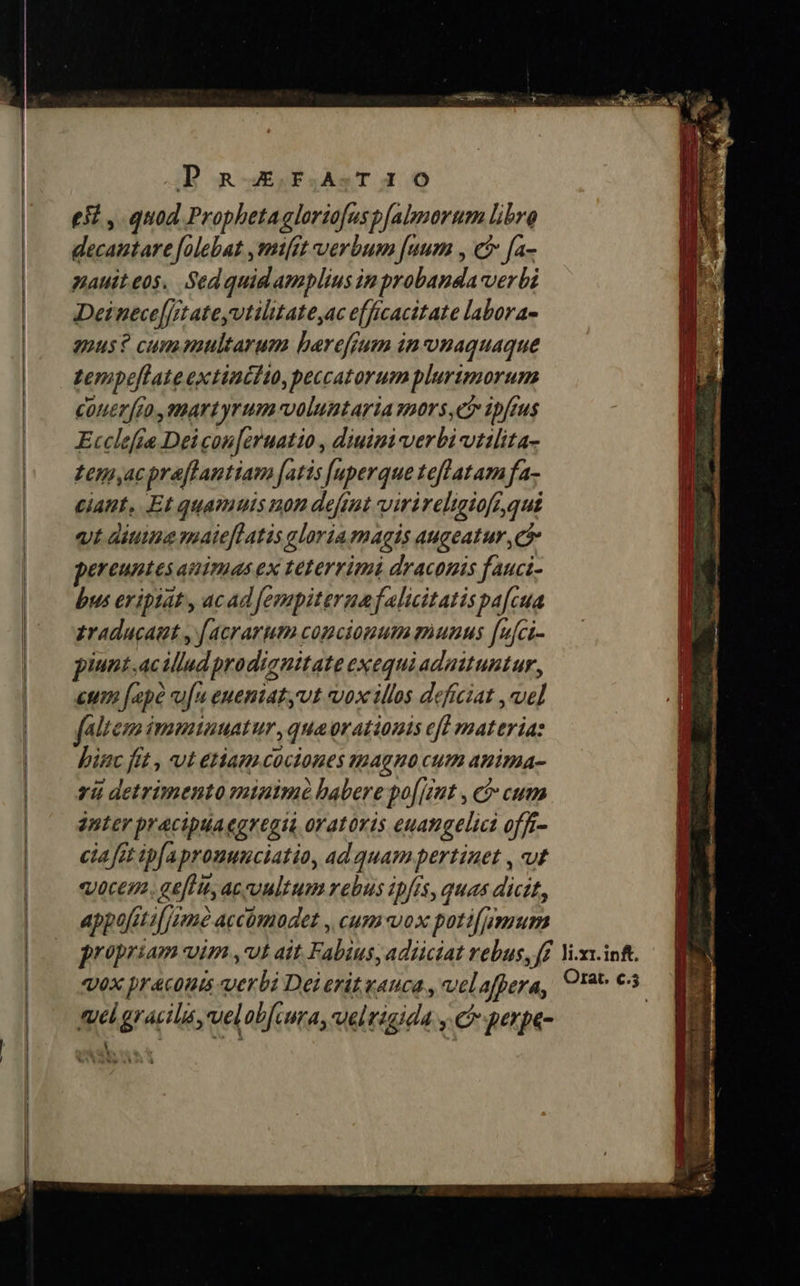 PRÆFATIO
eſt, quod Propheta glorioſus pſalmorum libro
decantare ſolebat, miſit verbum ſuum, & ſa-
nauit eos. Sed quid amplius in probanda verbi
Dei neceſſitate, vtilitate, ac efficacitate labora-
mus? cum multarum hæreſium in vnaquaque
tempeſtate extinctio, peccatorum plurimorum
cōuerſio, martyrum voluntaria mors, & ipſius
Eccleſiæ Dei conſeruatio, diuini verbi vtilita-
tem, ac præſtantiam ſatis ſuperque teſtatam fa-
ciant. Et quamuis non deſint viri religioſi, qui
vt diuinæ maieſtatis gloria magis augeatur, &
pereuntes animas ex teterrimi draconis fauci-
bus eripiāt, ac ad ſempiternæ fælicitatis paſcua
traducant, ſacrarum concionum munus ſuſci-
piunt. ac illud pro dignitate exequi adnituntur,
cum ſæpè vſu eueniat, vt vox illos deficiat, vel
ſaltem imminuatur, quæ orationis eſt materia:
hinc fit, vt etiam cōciones magno cum anima-
rū detrimento minimè habere poſſint, & cum
inter præcipua egregii oratoris euangelici offi-
cia ſit ipſa pronunciatio, ad quam pertinet, vt
vocem, geſtū, ac vultum rebus ipſis, quas dicit,
appoſitiſſimè accōmodet, cum vox potiſſimum
propriam vim, vt ait Fabius, adiiciat rebus, ſi
li.xi.inſt.
vox præconis verbi Dei erit rauca, vel aſpera,
Orat. c.3
vel gracilis, vel obſcura, vel rigida, & perpe-